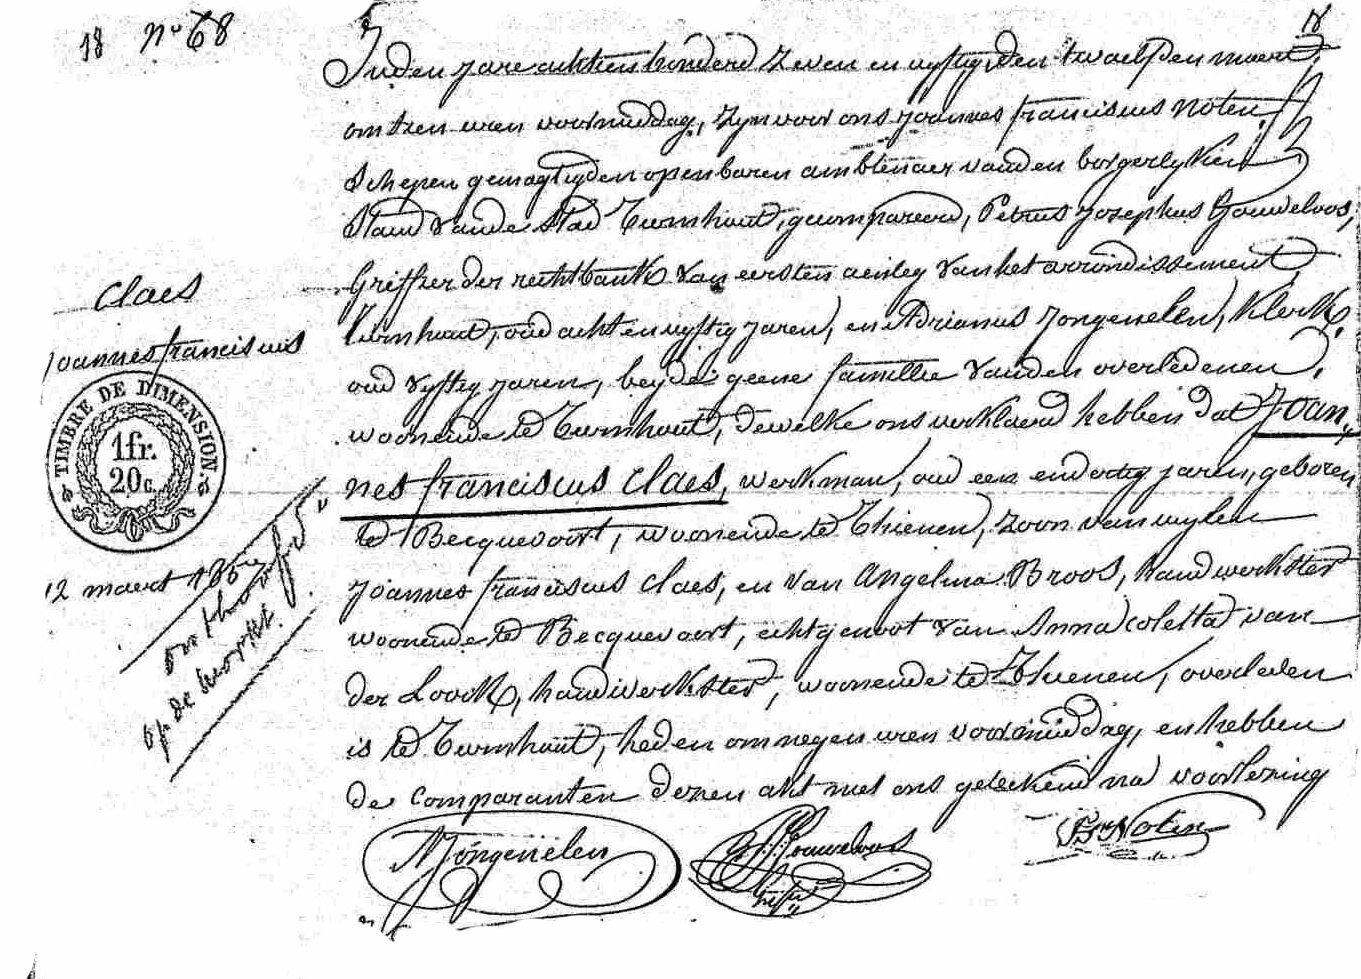 18 n° 68
Inden jare achtien honderd zeven en vyftig, den twaelfden maert,
om tien uren voormiddag, zyn voor ons Joannes franciscus Noten,
Schepen gemagtigden openbaren ambtenaer vanden borgerlyken
Stand vande Stad Turnhout, gecompareerd, Petrus Josephus Gouveloos,
Griffier der rechtbank van eersten aenleg van het arrondissement
Turnhout, oud acht en vyftig jaren, en Adrianus Jongenelen, Klerk,
oud vyftig jaren, beyde geene famillie vanden overledenen,
woonende te Turnhout, dewelke ons verklaerd hebben dat Joan„
nes franciscus Claes, werkman, oud een endertig jaren, geboren
te Becquevoort, woonende te Thienen, zoon van wylen
Joannes franciscus Claes, en van Angelina Broos, handwerkster
woonende te Becquevoort, echtgenoot van Anna Coletta van
der Loock, handwerkster, woonende te Thienen, overleden
is te Turnhout, heden om negen uren voormiddag, en hebben
de comparanten dezen akt met ons geteekend na voorlezing
Claes
Joannes franciscus
TIMBRE DE DIMENSION
1fr.
20c.
12 maert 1857
op de
AJongenelen
PJGouveloos
Noten